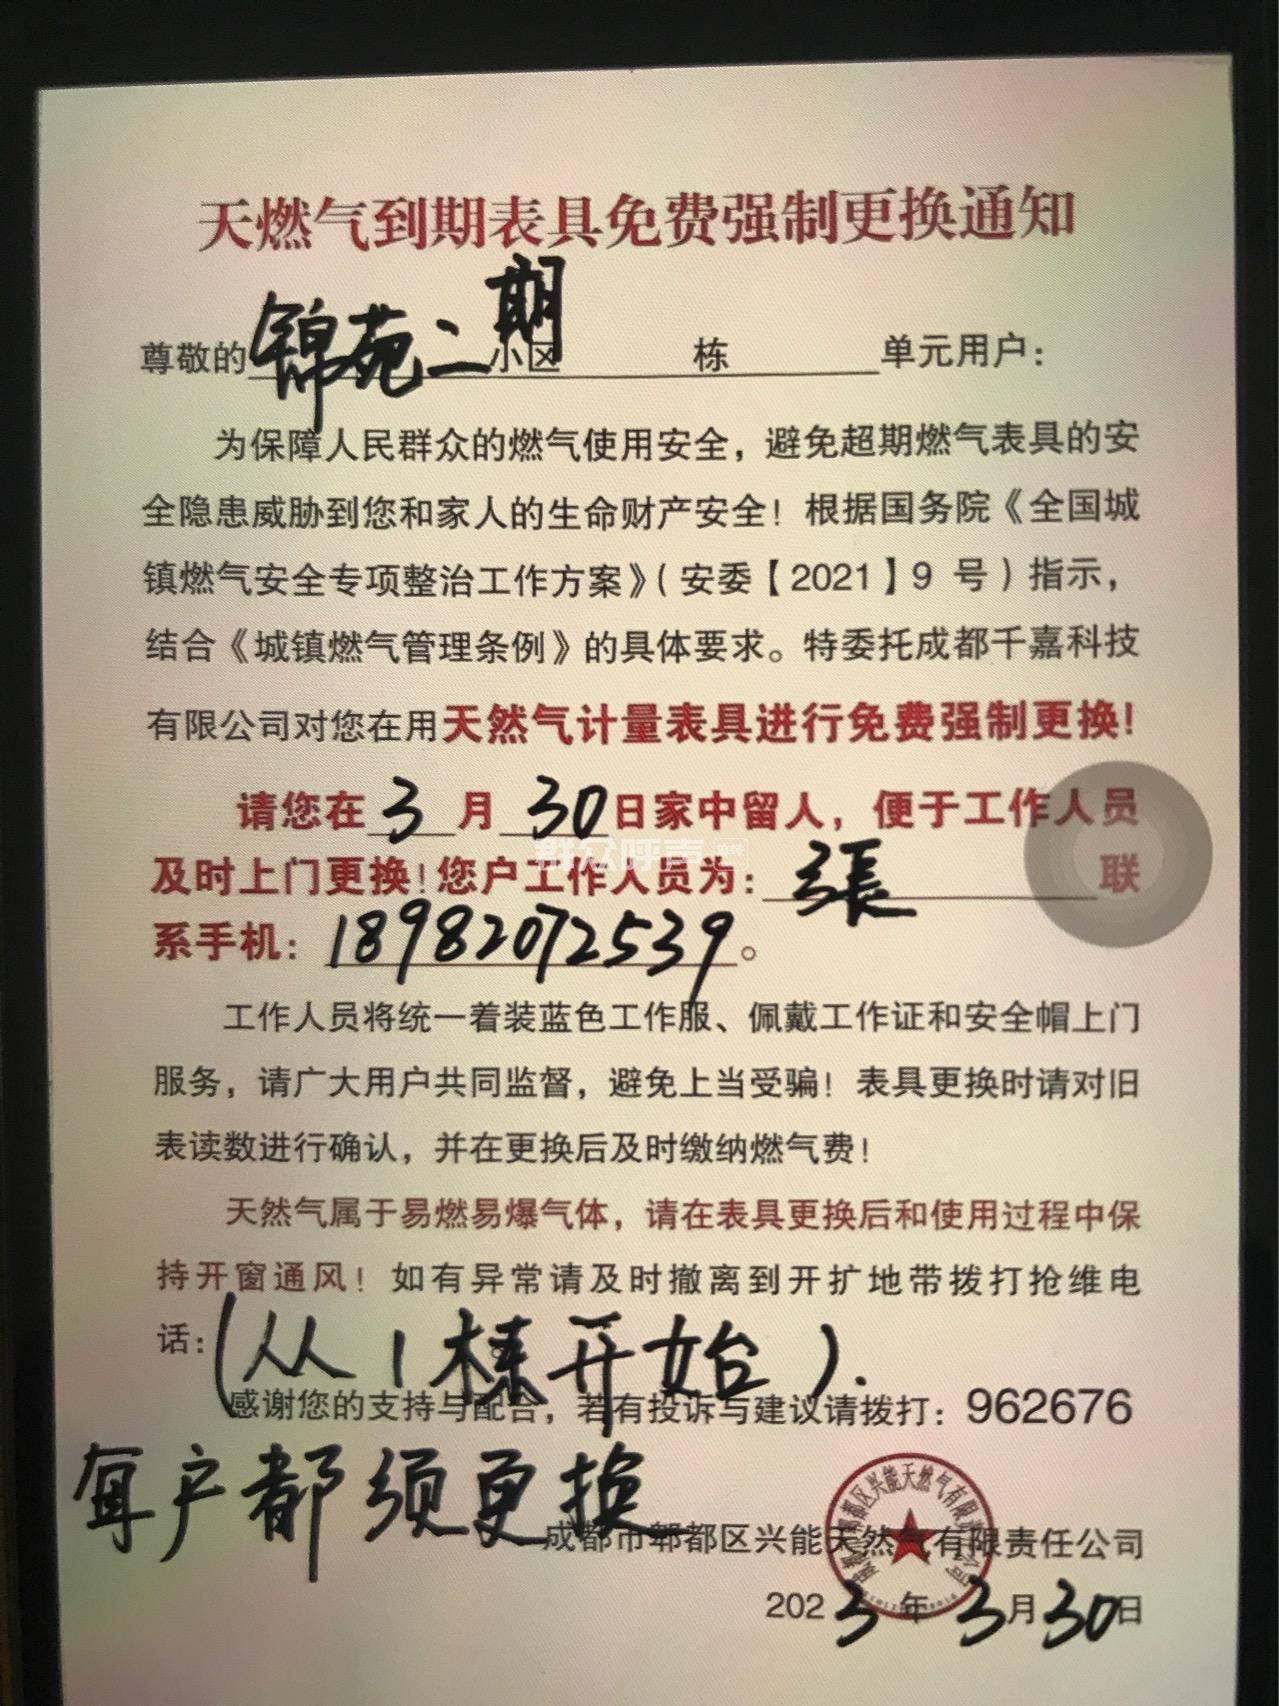 天燃气到期表具免费强制更换通知
尊敬的锦苑二期小区 栋 单元用户：
为保障人民群众的燃气使用安全，避免超期燃气表具的安
全隐患威胁到您和家人的生命财产安全！根据国务院《全国城
镇燃气安全专项整治工作方案》（安委【2021】9 号）指示，
结合《城镇燃气管理条例》的具体要求。特委托成都千嘉科技
有限公司对您在用天然气计量表具进行免费强制更换！
请您在3月30日家中留人，便于工作人员
群众呼声
及时上门更换！您户工作人员为：張 联
系手机：18982072539。
工作人员将统一着装蓝色工作服、佩戴工作证和安全帽上门
服务，请广大用户共同监督，避免上当受骗！表具更换时请对旧
表读数进行确认，并在更换后及时缴纳燃气费！
天然气属于易燃易爆气体，请在表具更换后和使用过程中保
持开窗通风！如有异常请及时撤离到开扩地带拨打抢维电
话：（从1棟开始）.
感谢您的支持与配合，若有投诉与建议请拨打：962676
每户都须更换
成都市郫都区兴能天然气有限责任公司
2023年3月30日